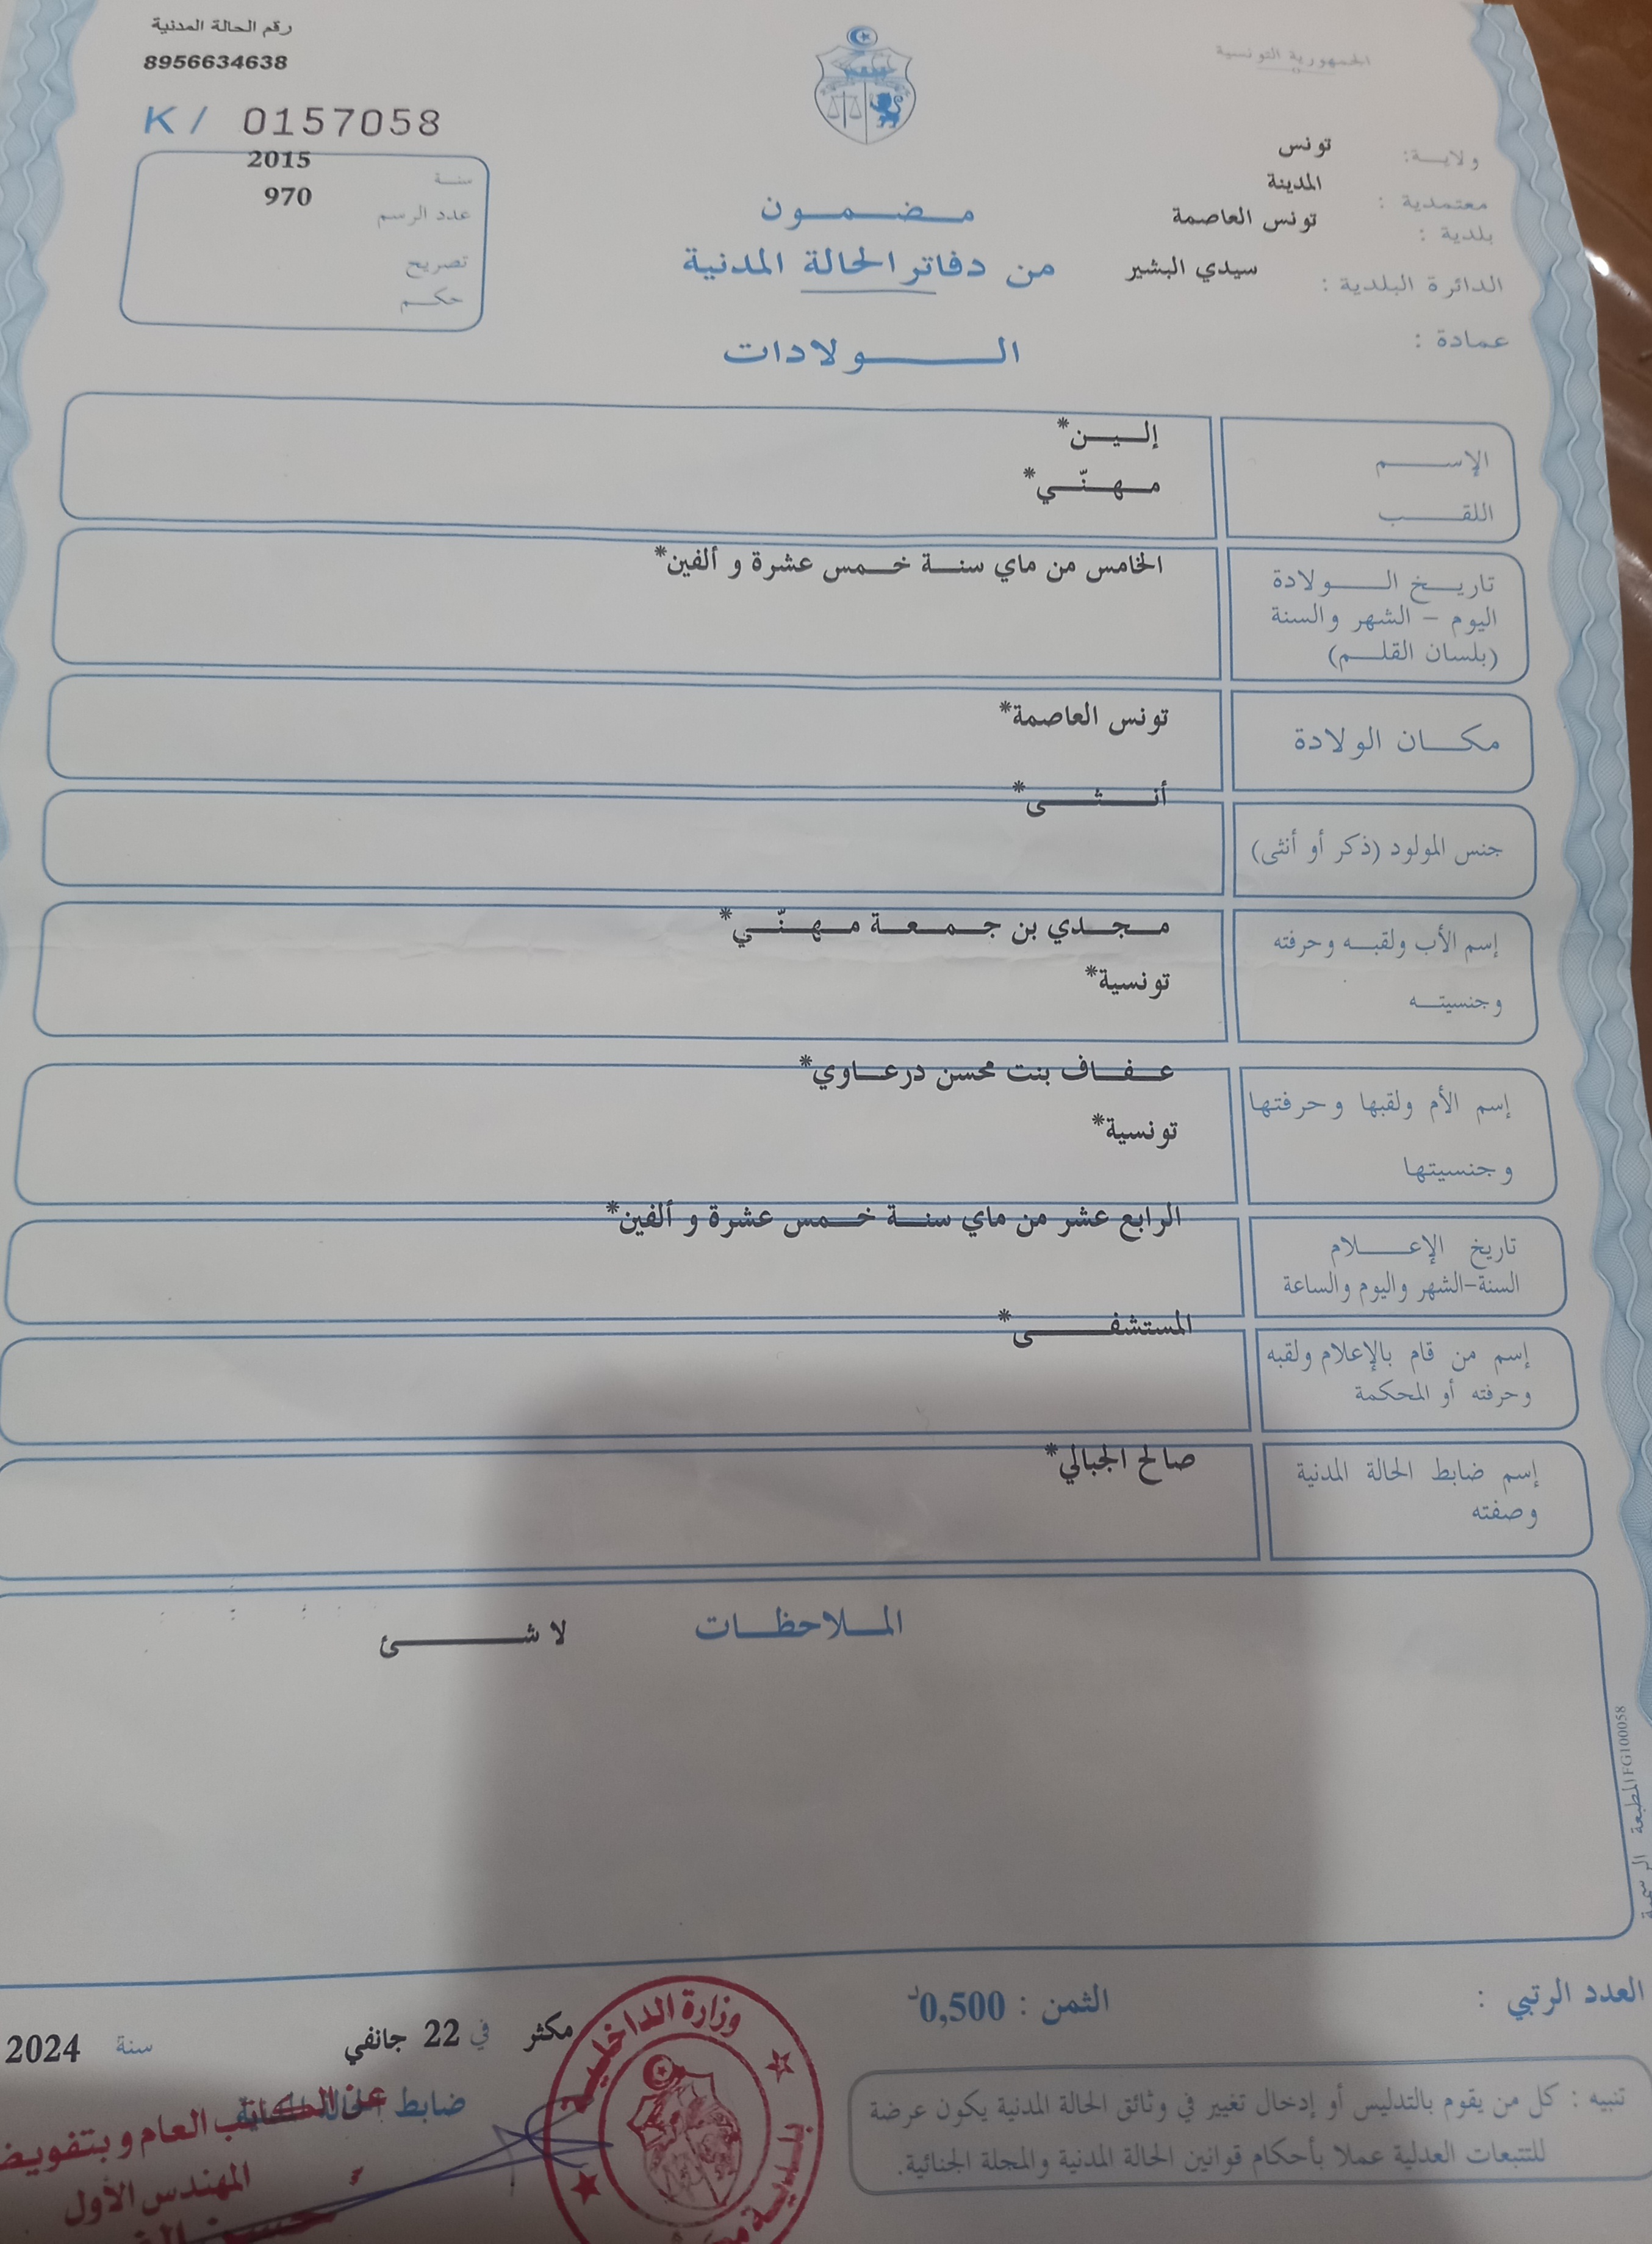 الجمهورية التونسية
رقم الحالة المدنية
8956634638
K/ 0157058
سنة 2015
عدد الرسم 970
تصريح
حكم
ولاية: تونس
معتمدية: المدينة
بلدية: تونس العاصمة
الدائرة البلدية: سيدي البشير
عمادة:
مضمون
من دفاتر الحالة المدنية
الولادات
الإسم إلين*
اللقب مهنّي*
تاريخ الولادة الخامس من ماي سنة خمس عشرة و ألفين*
اليوم - الشهر والسنة
(بلسان القلم)
مكان الولادة تونس العاصمة*
جنس المولود (ذكر أو أنثى) أنثى*
إسم الأب ولقبه وحرفته مجدي بن جمعة مهنّي*
وجنسيته تونسية*
إسم الأم ولقبها وحرفتها عفاف بنت محسن درعاوي*
وجنسيتها تونسية*
تاريخ الإعلام الرابع عشر من ماي سنة خمس عشرة و ألفين*
السنة-الشهر واليوم والساعة
إسم من قام بالإعلام ولقبه المستشفى*
وحرفته أو المحكمة
إسم ضابط الحالة المدنية صالح الجبالي*
وصفته
الملاحظات لا شئ
المطبعة الرسمية FG100058
العدد الرتبي :
الثمن : 0,500د
مكثر في 22 جانفي سنة 2024
ضابط الحالة المدنية
عن الكاتب العام و بتفويض
المهندس الأول
وزارة الداخلية
بلدية
تنبيه : كل من يقوم بالتدليس أو إدخال تغيير في وثائق الحالة المدنية يكون عرضة
للتتبعات العدلية عملا بأحكام قوانين الحالة المدنية والمجلة الجنائية.